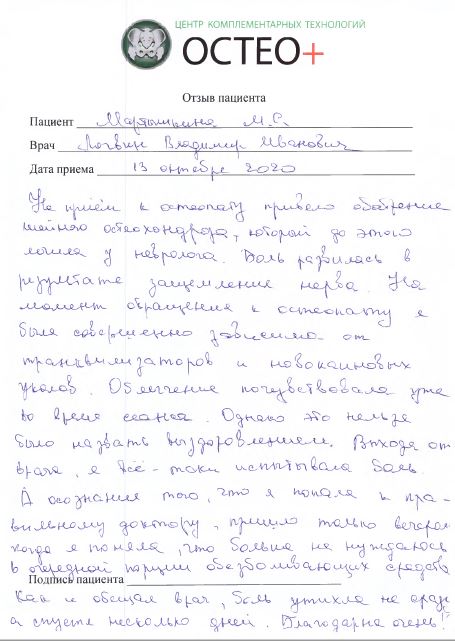 ЦЕНТР КОМПЛЕМЕНТАРНЫХ ТЕХНОЛОГИЙ
ОСТЕО+
Отзыв пациента
Пациент Мартышкина М. С.
Врач Логвин Владимир Иванович
Дата приема 13 октября 2020
На приём к остеопату привело обострение
шейного остеохондроза, который до этого
лечила у невролога. Боль развилась в
результате защемление нерва. На
момент обращения к остеопату я
была совершенно зависима от
транквилизаторов и новокаиновых
уколов. Облегчение почувствовала уже
во время сеанса. Однако это нельзя
было назвать выздоровлением. Выходя от
врача, я всё-таки испытывала боль.
А осознание того, что я попала к пра-
вильному доктору, пришло только вечером
когда я поняла, что больше не нуждаюсь
в очередной порции обезболивающих средств
Подпись пациента
Как и обещал врач, боль утихла не сразу
а спустя несколько дней. Благодарна очень!